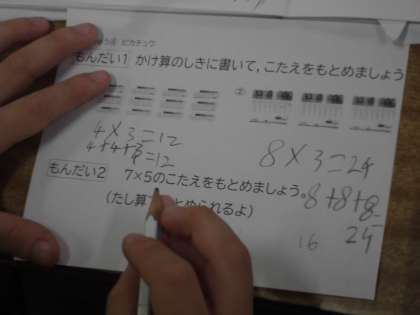 ょう④ ピカチュウ
もんだい1 かけ算のしきに書いて，こたえをもとめましょう
②
4×3=12
4+4+4=12
8×3=24
8+8+8=
24
16
もんだい2 7×5のこたえをもとめましょう。
(たし算 められるよ)